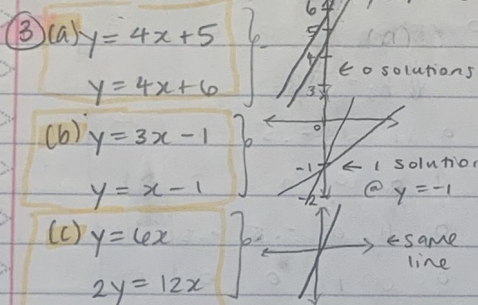 ③ (a) y = 4x + 5
y = 4x + 6
6
5
4
3
← 0 solutions
(b) y = 3x - 1
y = x - 1
0
-1
-2
← 1 solution
@ y = -1
(c) y = 6x
2y = 12x
← same
line